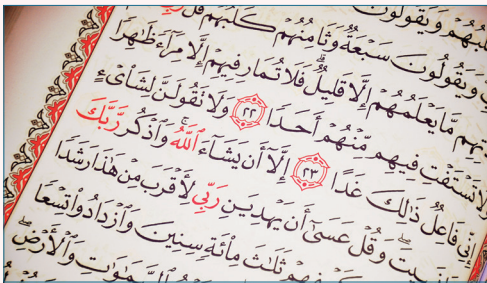 وَيَقُولُونَ
وَيَقُولُونَ سَبْعَةٌ وَثَامِنُهُمْ كَلْبُهُمْ قُل
مَّا يَعْلَمُهُمْ إِلَّا قَلِيلٌ ۗ فَلَا تُمَارِ فِيهِمْ إِلَّا مِرَآءً ظَٰهِرًا
تَسْتَفْتِ فِيهِم مِّنْهُمْ أَحَدًا ٢٢ وَلَا تَقُولَنَّ لِشَا۟ىْءٍ
إِنِّي فَاعِلٌ ذَٰلِكَ غَدًا ٢٣ إِلَّآ أَن يَشَآءَ ٱللَّهُ ۚ وَٱذْكُر رَّبَّكَ
نَسِيتَ وَقُلْ عَسَىٰٓ أَن يَهْدِيَنِ رَبِّي لِأَقْرَبَ مِنْ هَٰذَا رَشَدًا
ثَلَٰثَ مِا۟ئَةٍ سِنِينَ وَٱزْدَادُوا۟ تِسْعًا
ٱلسَّمَٰوَٰتِ وَٱلْأَرْضِ ۖ